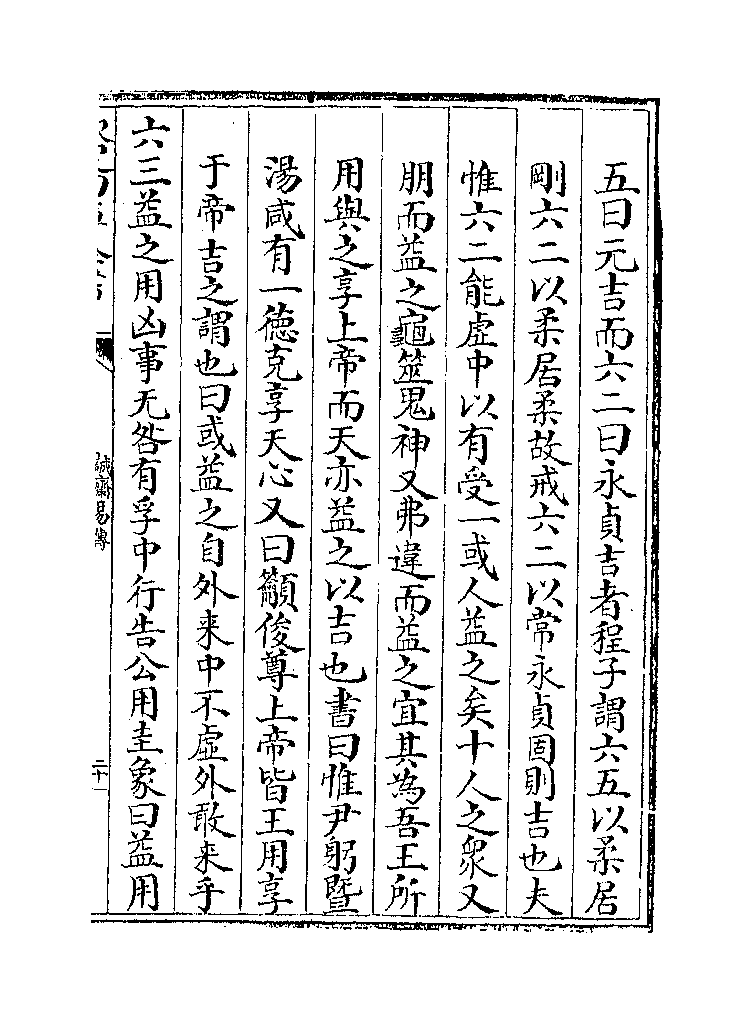 五曰元吉而六二曰永貞吉者程子謂六五以柔居
剛六二以柔居柔故戒六二以常永貞固則吉也夫
惟六二能虚中以有受一或人益之矣十人之衆又
朋而益之龜筮鬼神又弗違而益之宜其為吾王所
用與之享上帝而天亦益之以吉也書曰惟尹躬曁
湯咸有一德克享天心又曰籲俊尊上帝皆王用享
于帝吉之謂也曰或益之自外来中不虚外敢来乎
六三益之用凶事无咎有孚中行告公用圭象曰益用
誠齋易傳
二十